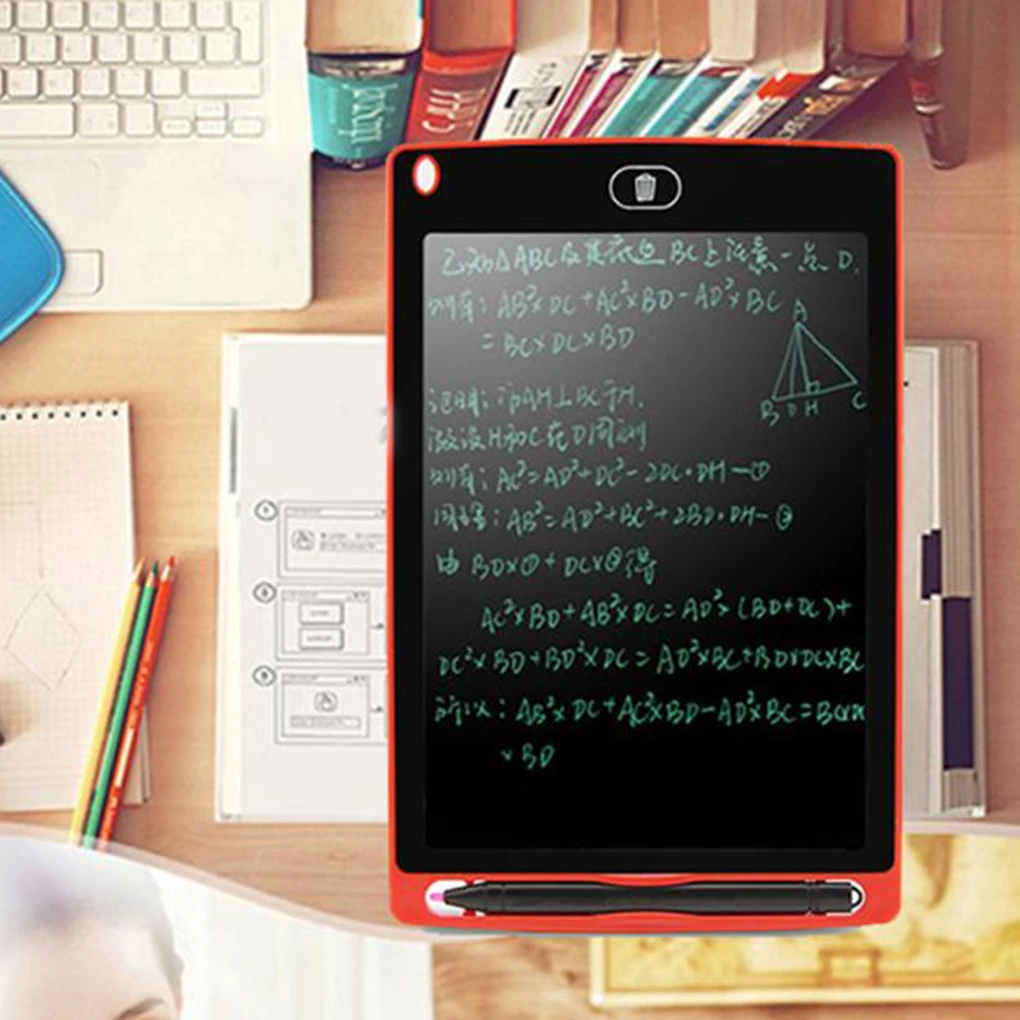 已知△ABC及其底边BC上任意一点D,
则有：AB²×DC+AC²×BD-AD²×BC
=BC×DC×BD
证明：作AH⊥BC于H,
A
B D H C
假设H和C在D同侧
则有：AC²=AD²+DC²-2DC·DH—①
AB²=AD²+BC²+2BD·DH—②
由BD×①+DC×②得
AC²×BD+AB²×DC=AD²×(BD+DC)+
DC²×BD+BD²×DC=AD²×BC+BD×DC×BC
所以：AB²×DC+AC²×BD-AD²×BC=BC×DC
×BD